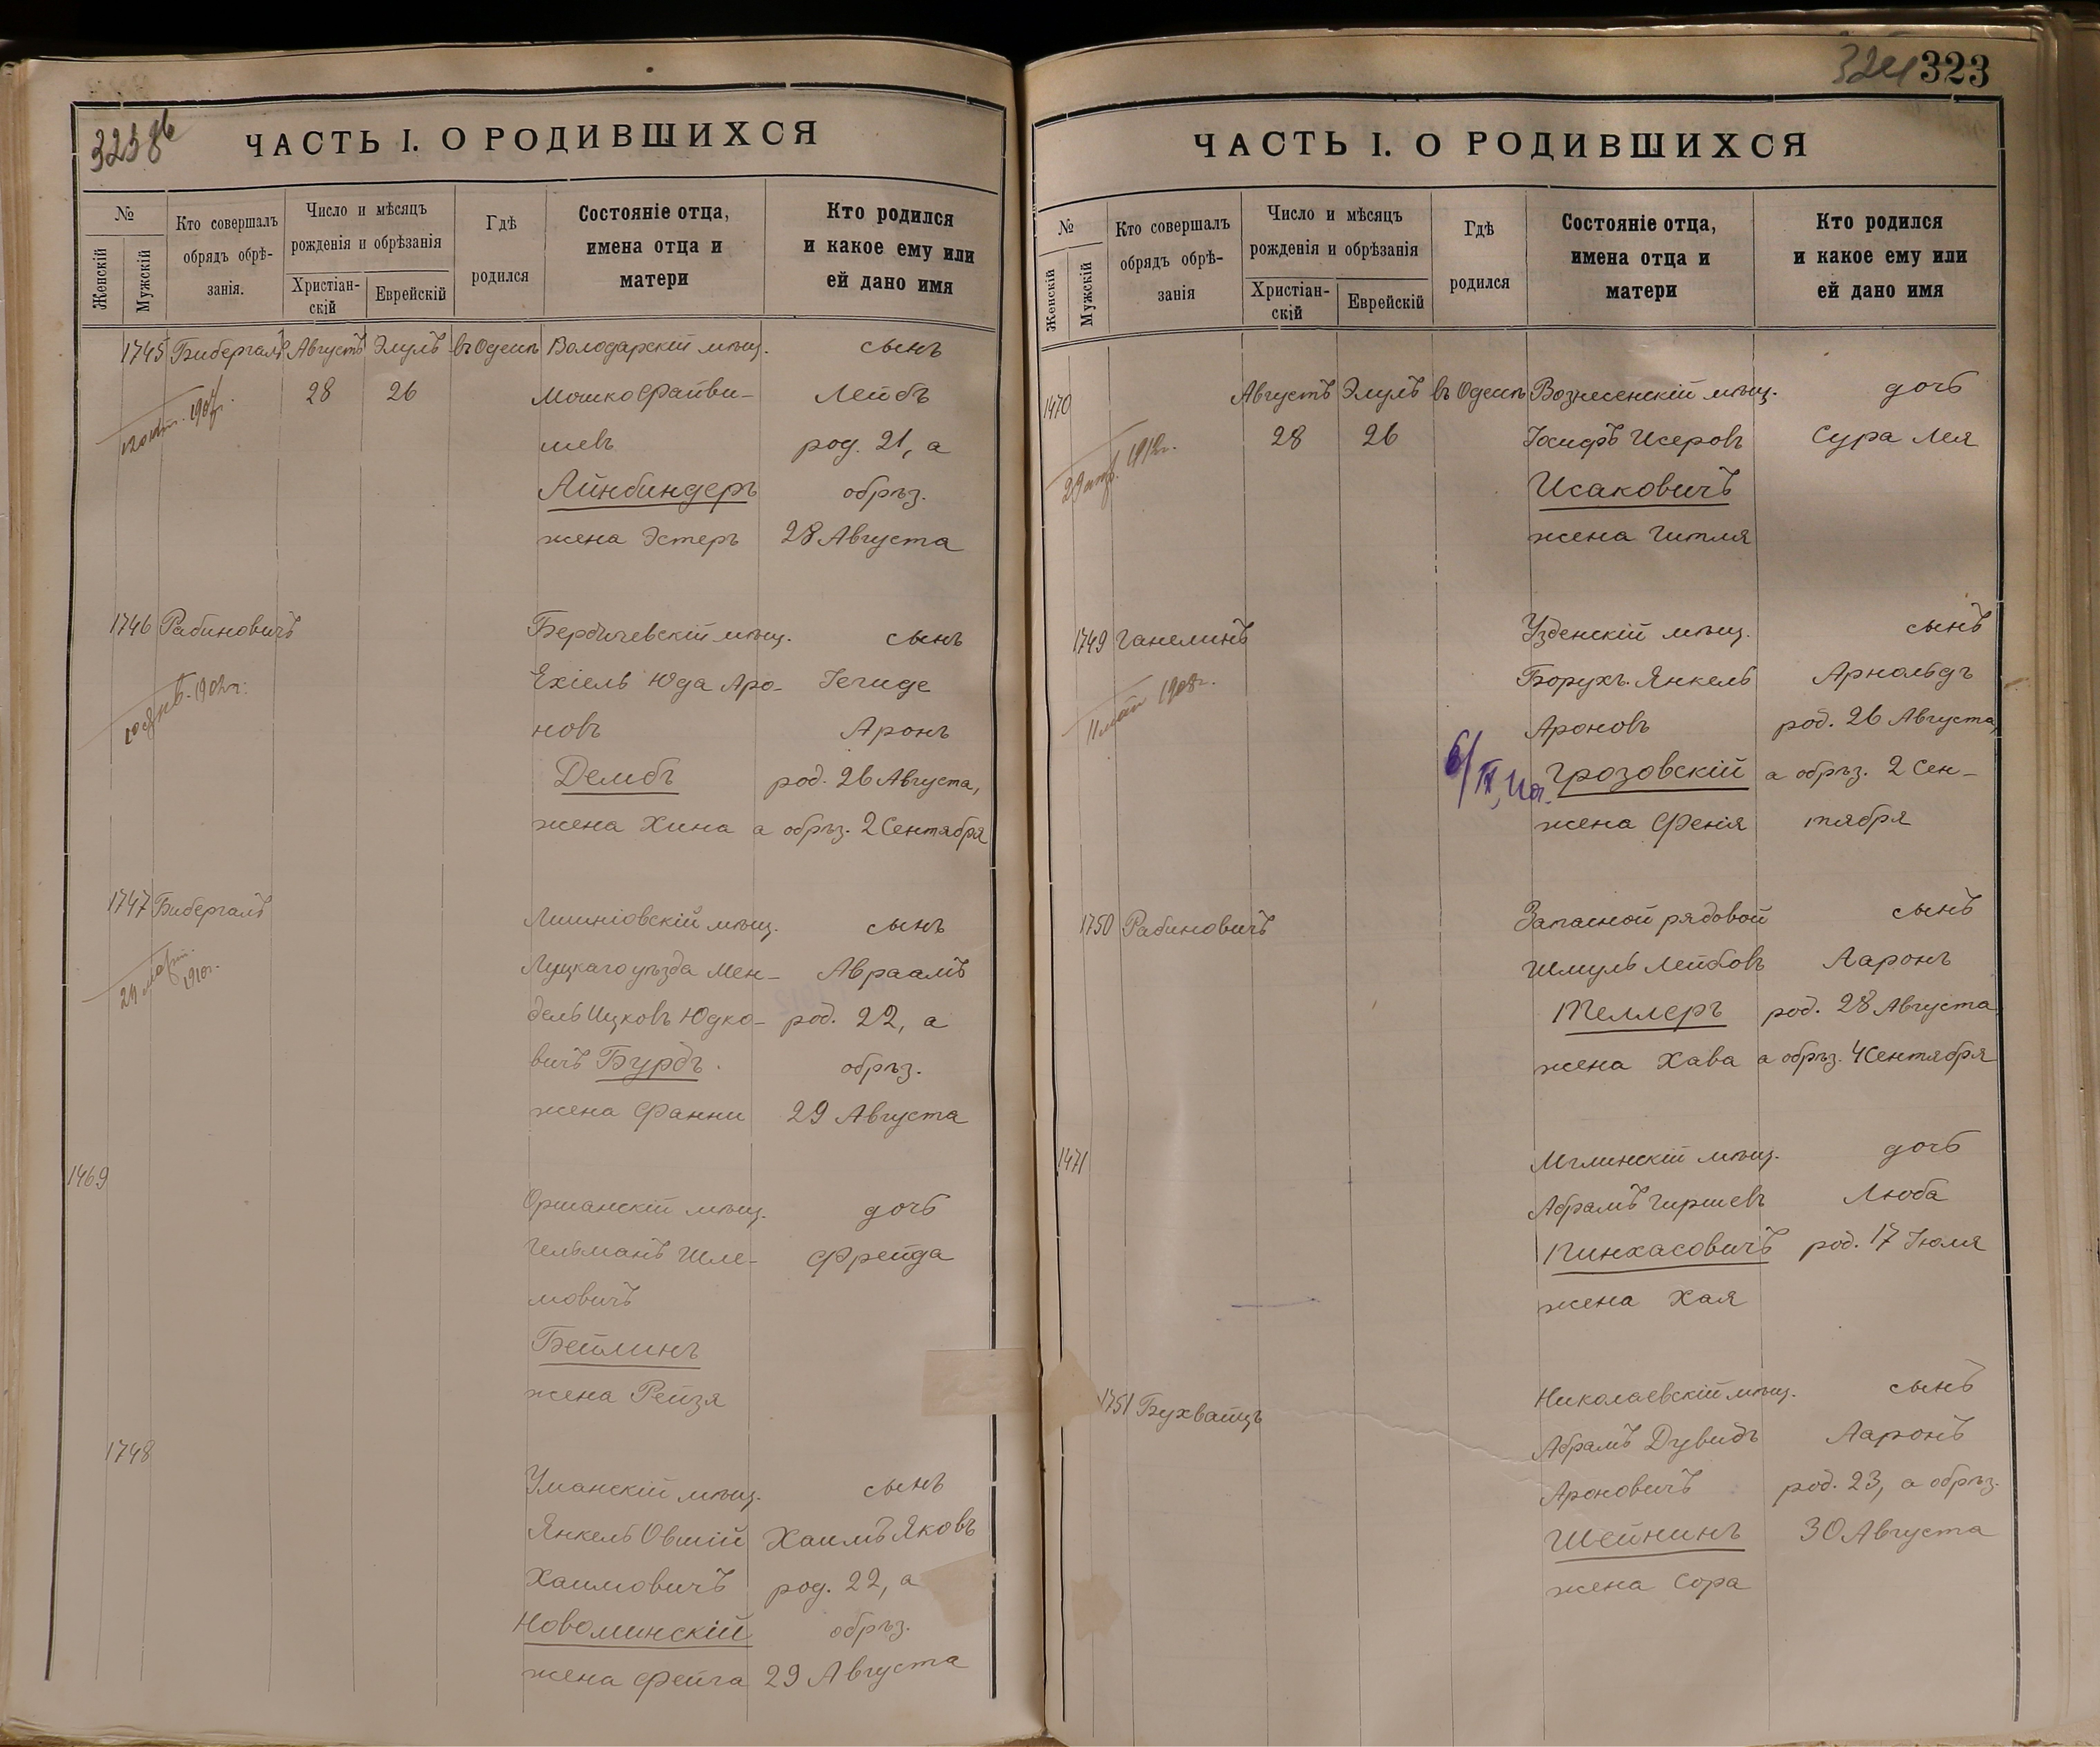 323
ЧАСТЬ I. О РОДИВШИХСЯ
№
Женскій
Мужскій
Кто совершалъ
обрядъ обрѣ-
занія.
Число и мѣсяцъ
рожденія и обрѣзанія
Христіан-
скій
Еврейскій
Гдѣ
родился
Состояніе отца,
имена отца и
матери
Кто родился
и какое ему или
ей дано имя
1745 Бибергалъ Августъ Элулъ въ Одессѣ Володарскій мѣщ. сынъ
28 26 Мошко Файви- Лейбъ
шевъ род. 21, а
Айнбиндеръ обрѣз.
жена Эстеръ 28 Августа
1746 Рабиновичъ Бердичевскій мѣщ. сынъ
Ехіель Юда Аро- Іегуде
новъ Аронъ
Дембъ род. 26 Августа,
жена Хина а обрѣз. 2 Сентября
1747 Бибергалъ Лишніовскій мѣщ. сынъ
Луцкаго уѣзда Мен- Авраамъ
дель Ицковъ Юдко- род. 22, а
вичъ Бурдъ. обрѣз.
жена Фанни 29 Августа
1469 Оршанскій мѣщ. дочь
Гельманъ Шле- Фрейда
мовичъ
Бейлинъ
жена Рейзя
1748 Уманскій мѣщ. сынъ
Янкель Овшій Хаимъ Яковъ
Хаимовичъ род. 22, а
Новоминскій обрѣз.
жена Фейга 29 Августа
324 323
ЧАСТЬ I. О РОДИВШИХСЯ
№
Женскій
Мужскій
Кто совершалъ
обрядъ обрѣ-
занія
Число и мѣсяцъ
рожденія и обрѣзанія
Христіан-
скій
Еврейскій
Гдѣ
родился
Состояніе отца,
имена отца и
матери
Кто родился
и какое ему или
ей дано имя
1470 Августъ Элулъ въ Одессѣ Вознесенскій мѣщ. дочь
28 26 Іосифъ Исеровъ Сура Лея
Исаковичъ
жена Гитля
1749 Ганелинъ Узденскій мѣщ. сынъ
11 мая 1908г.
Борухъ-Янкель Арнольдъ
Ароновъ род. 26 Августа,
Грозовскій а обрѣз. 2 Сен-
жена Фенія тября
1750 Рабиновичъ Запасной рядовой сынъ
Шмуль Лейбовъ Ааронъ
Теллеръ род. 28 Августа
жена Хава а обрѣз. 4 Сентября
1471 Мглинскій мѣщ. дочь
Абрамъ Гиршевъ Люба
Пинхасовичъ род. 17 Іюля
жена Хая
1751 Бухвайцъ Николаевскій мѣщ. сынъ
Абрамъ Дувидъ Ааронъ
Ароновичъ род. 23, а обрѣз.
Шейнинъ 30 Августа
жена Сора